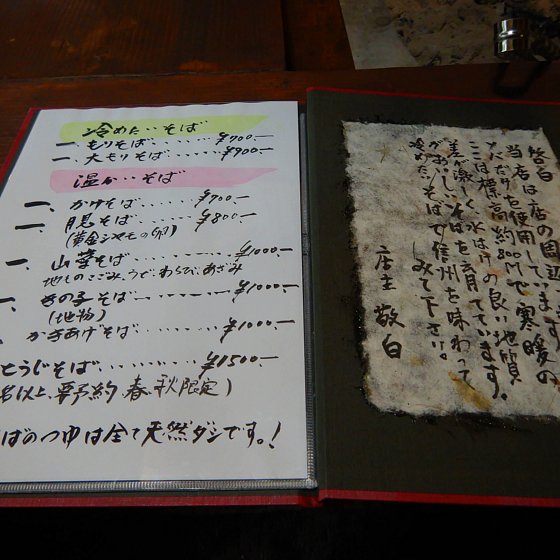 冷めたいそば
一、もりそば・・・・・・¥700.-
一、大もりそば・・・・・¥900.-
温かいそば
一、かけそば・・・・・・¥700-
一、月見そば・・・・・・¥800-
(黄金シャモの卵)
一、山菜そば・・・・・・¥1000-
地ものこごみ、うど、わらび、あざみ
、きの子そば ¥1000-
(地物)
、かきあげそば ¥1000-
とうじそば・・・・・・・・・¥1500-
名以上、要予約、春、秋限定)
ばのつゆは全て天然ダシです。!
啓白
当店は店の周辺
ソバだけを使用しています。
ここは標高約800Mで寒暖の
差が激しく水はけの良い地質
がおいしいそばを育てています。
冷めたいそばで信州を味わって
みて下さい。
店主 敬白